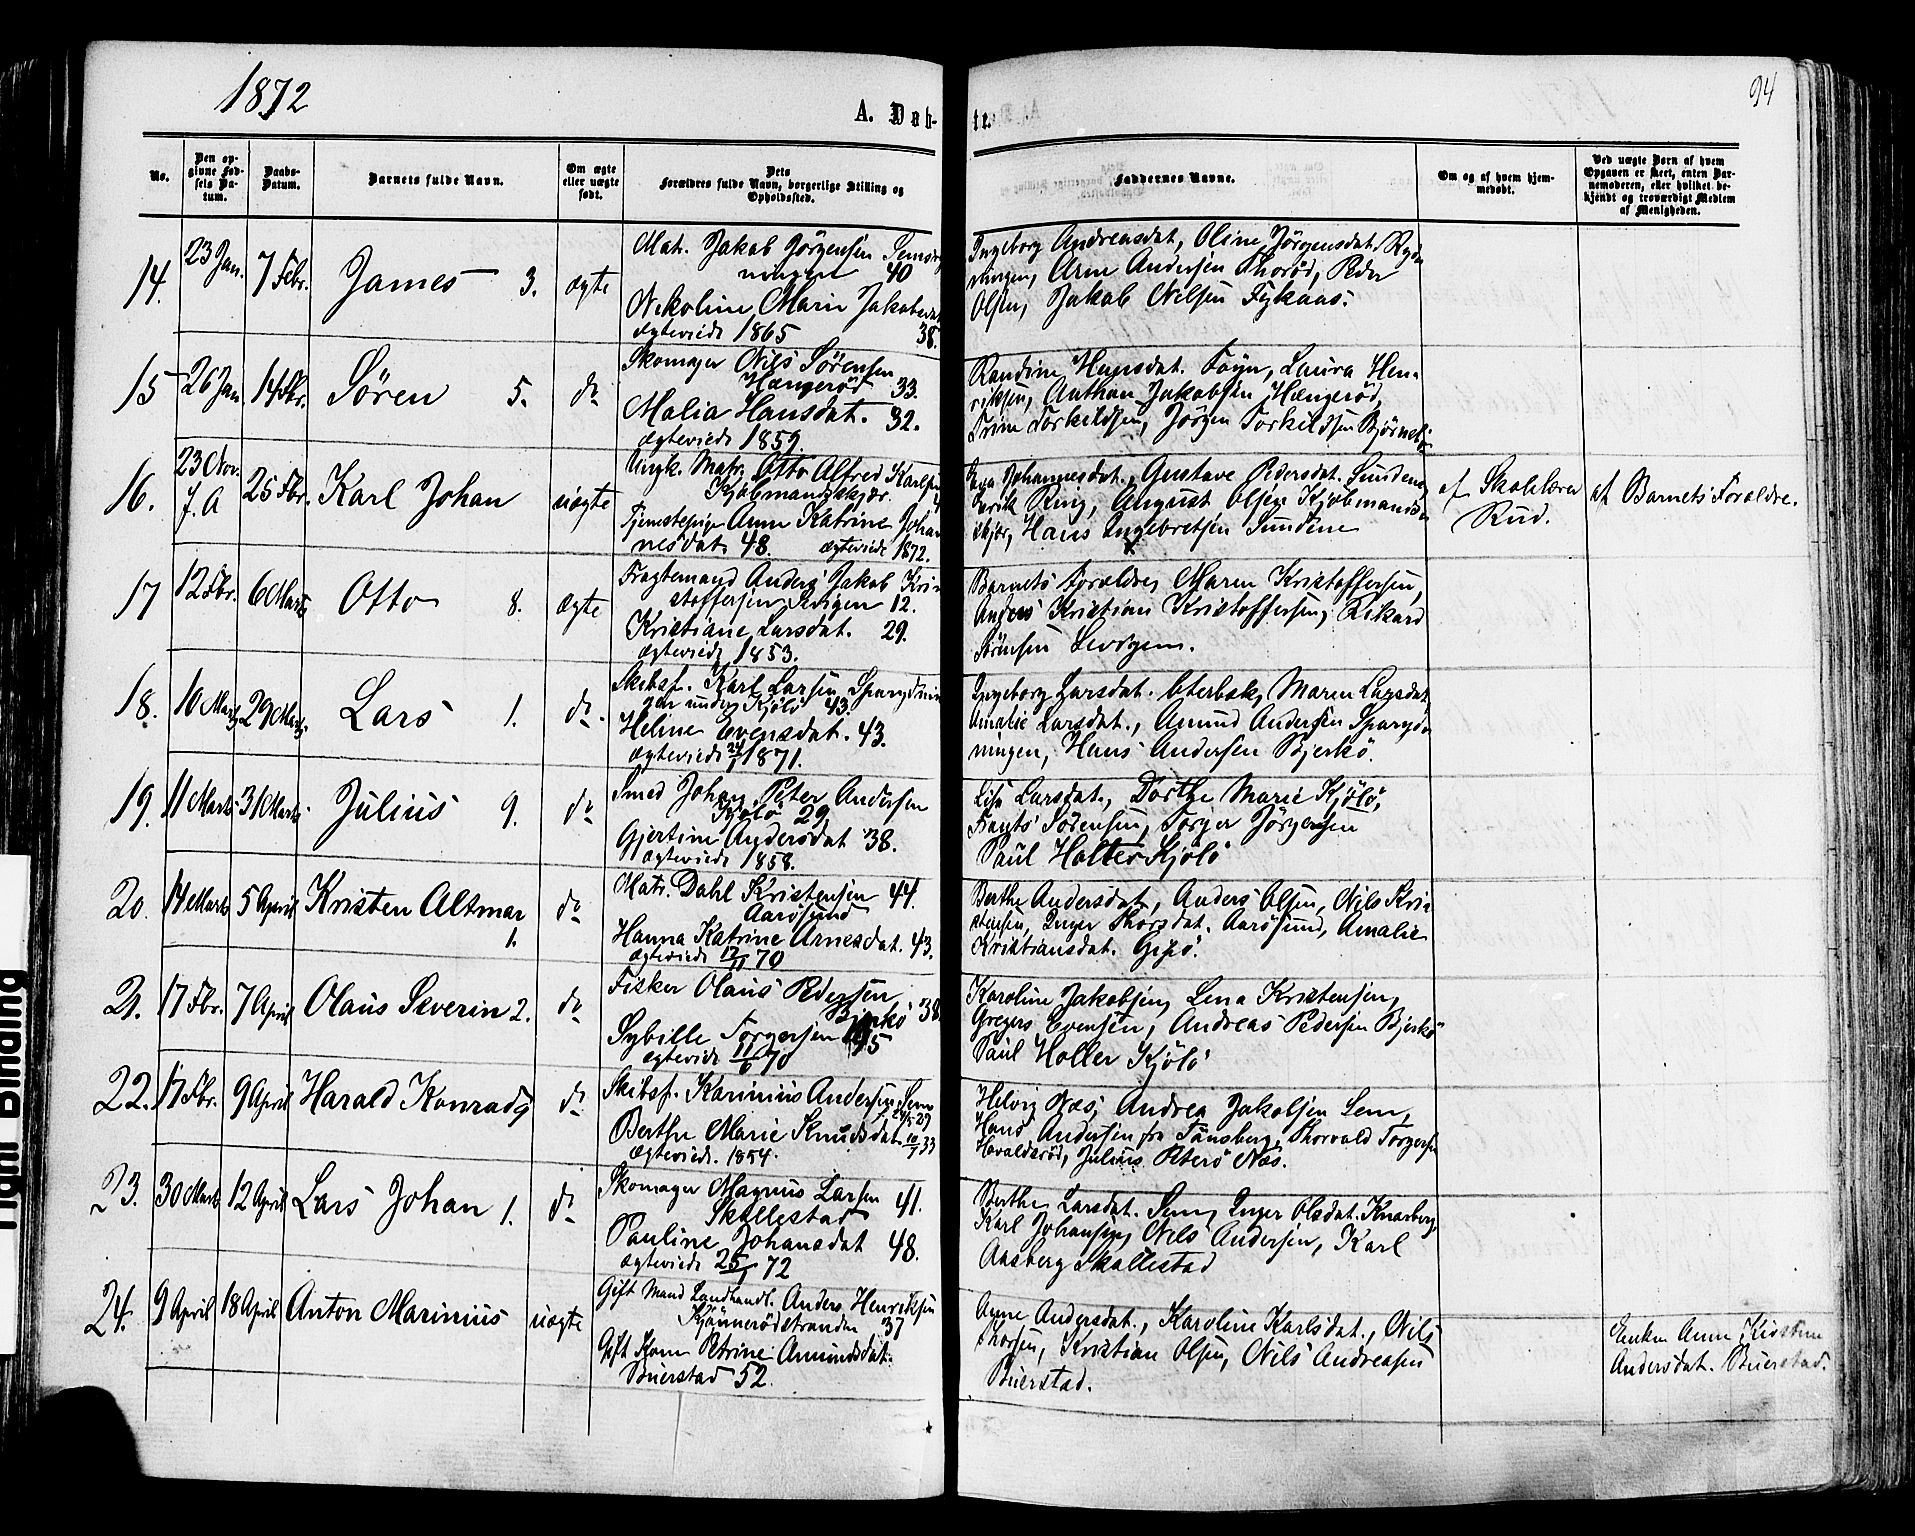 1872
A. Døb-
te.
94
No.
Den op-
givne Fød-
sels Da-
tum.
Daabs-
Datum.
Barnets fulde Navn.
Om ægte
eller uægte
født.
Dets
Forældres fulde Navn, borgerlige Stilling og
Opholdssted.
Faddernes Navne.
Om og af hvem hjem-
medøbt.
Ved uægte Børn af hvem
Opgaven er skeet, enten Bar-
nemoderen, eller hvilket be-
kjendt og troværdigt Medlem
af Menigheden.
14.
23 Jan.
7 Febr.
James 3.
ægte
Mat. Jakob Jörgensen
ningen 40
Nikoline Marie Jakobsdat
ægteviede 1865 38.
Ingeborg Andreasdat, Oline Jørgensdat.
ningen, Arne Andersen Thorød, Peder
Olsen, Jakob Nilsen
15
26 Jan
14 Fbr.
Søren 5.
do
Skomager Nils Sørensen
Hængerød 33.
Malia Hansdat. 32.
ægteviede 1859.
Randine Hansdat. Føyn, Laura Hen-
riksen, Anthon Jakobsen Hængerød,
Trine Torkildsen, Jörgen Torkildsen
16.
23 Nov.
f. A
25 Fbr.
Karl Johan
uægte
Ungk. Matr. Otto Alfred Karlsen
Kjøbmandskjær.
Tjenestepige Anne Katrine Johan
nesdat. 48. ægteviede 1872.
Johannesdat., Gustave Pedersdat. Sundene,
Ring, August Olsen Kjöbmands-
skjær, Hans Ingebretsen Sundene
af Skolelærer
Rud.
af Barnets Forældre.
17
12 Fbr.
6 Marts
Otto 8.
ægte
Fragtemand Anders Jakob Kri
stoffersen 12.
Kristiane Larsdat. 29.
ægteviede 1853.
Barnets Forældre, Maren Kristoffersen,
Anders Kristian Kristoffersen, Rikard
Sörensen
18.
10 Marts
29 Marts
Lars 1.
do.
Skibsf. Karl Larsen
under Kjölö 43.
Helene Evensdat. 43.
ægteviede 1871.
Ingeborg Larsdat. Oterbek, Maren Larsdat.
Amalie Larsdat., Amund Andersen
ningen, Hans Andersen Bjerkö.
19.
11 Marts
31 Marts
Julius 9.
do
Smed Johan Peter Andersen
Kjölö 29
Gjertine Andersdat 38.
ægteviede 1858.
Lise Larsdat., Dorthe Marie Kjölö,
Sörensen, Torger Jörgensen
Paul Holter Kjölö
20.
14 Marts
5 April
Kristen Altmar
1.
do
Matr. Dahl Kristensen 44.
Aarösund
Hanna Katrine Arnesdat. 43.
ægteviede 12/11 70
Berthe Andersdat, Anders Olsen, Nils Kri
stensen, Inger Thorsdat. Aarösund, Amalie
Kristiansdat. Gipö.
21.
17 Fbr.
7 April
Olaus Severin 2.
do
Fisker Olaus Pedersen,
Bjerkö 38
Sybille Torgersen 45
ægteviede 11/6 70
Karoline Jakobsen, Lena Kristensen,
Gregers Evensen, Andreas Pedersen Bjerkö
Paul Holter Kjölö
22.
17 Fbr.
9 April
Harald Konrad 9
do
Skibsf. Karinius Andersen Sem
29
Berthe Marie Knudsdat 33
ægteviede. 1854.
Helvig Næs, Andrea Jakobsen Sem,
Hans Andersen fra Tönsberg, Thorvald Torgersen
Havaldsröd, Julius Peters Næs.
23.
30 Marts
12 April
Lars Johan 1.
do
Skomager Magnus Larsen 41.
Skallestad
Pauline Johansdat 48.
ægteviede 25/1 72
Berthe Larsdat. Sem, Inger Olsdat. Knarberg,
Karl Johansen, Nils Andersen, Karl
Aasberg Skallestad
24.
9 April
18 April
Anton Marinius
uægte
Gift Mand Landhandl. Anders Henriksen
Kjønnerödstranden 37
Gift Kone Petrine Amundsdat.
Buerstad 52.
Anne Andersdat., Karoline Karlsdat., Nils
Thorsen, Kristian Olsen, Nils Andreasen
Buerstad.
Enken Anne Kirstine
Andersdat. Buerstad.